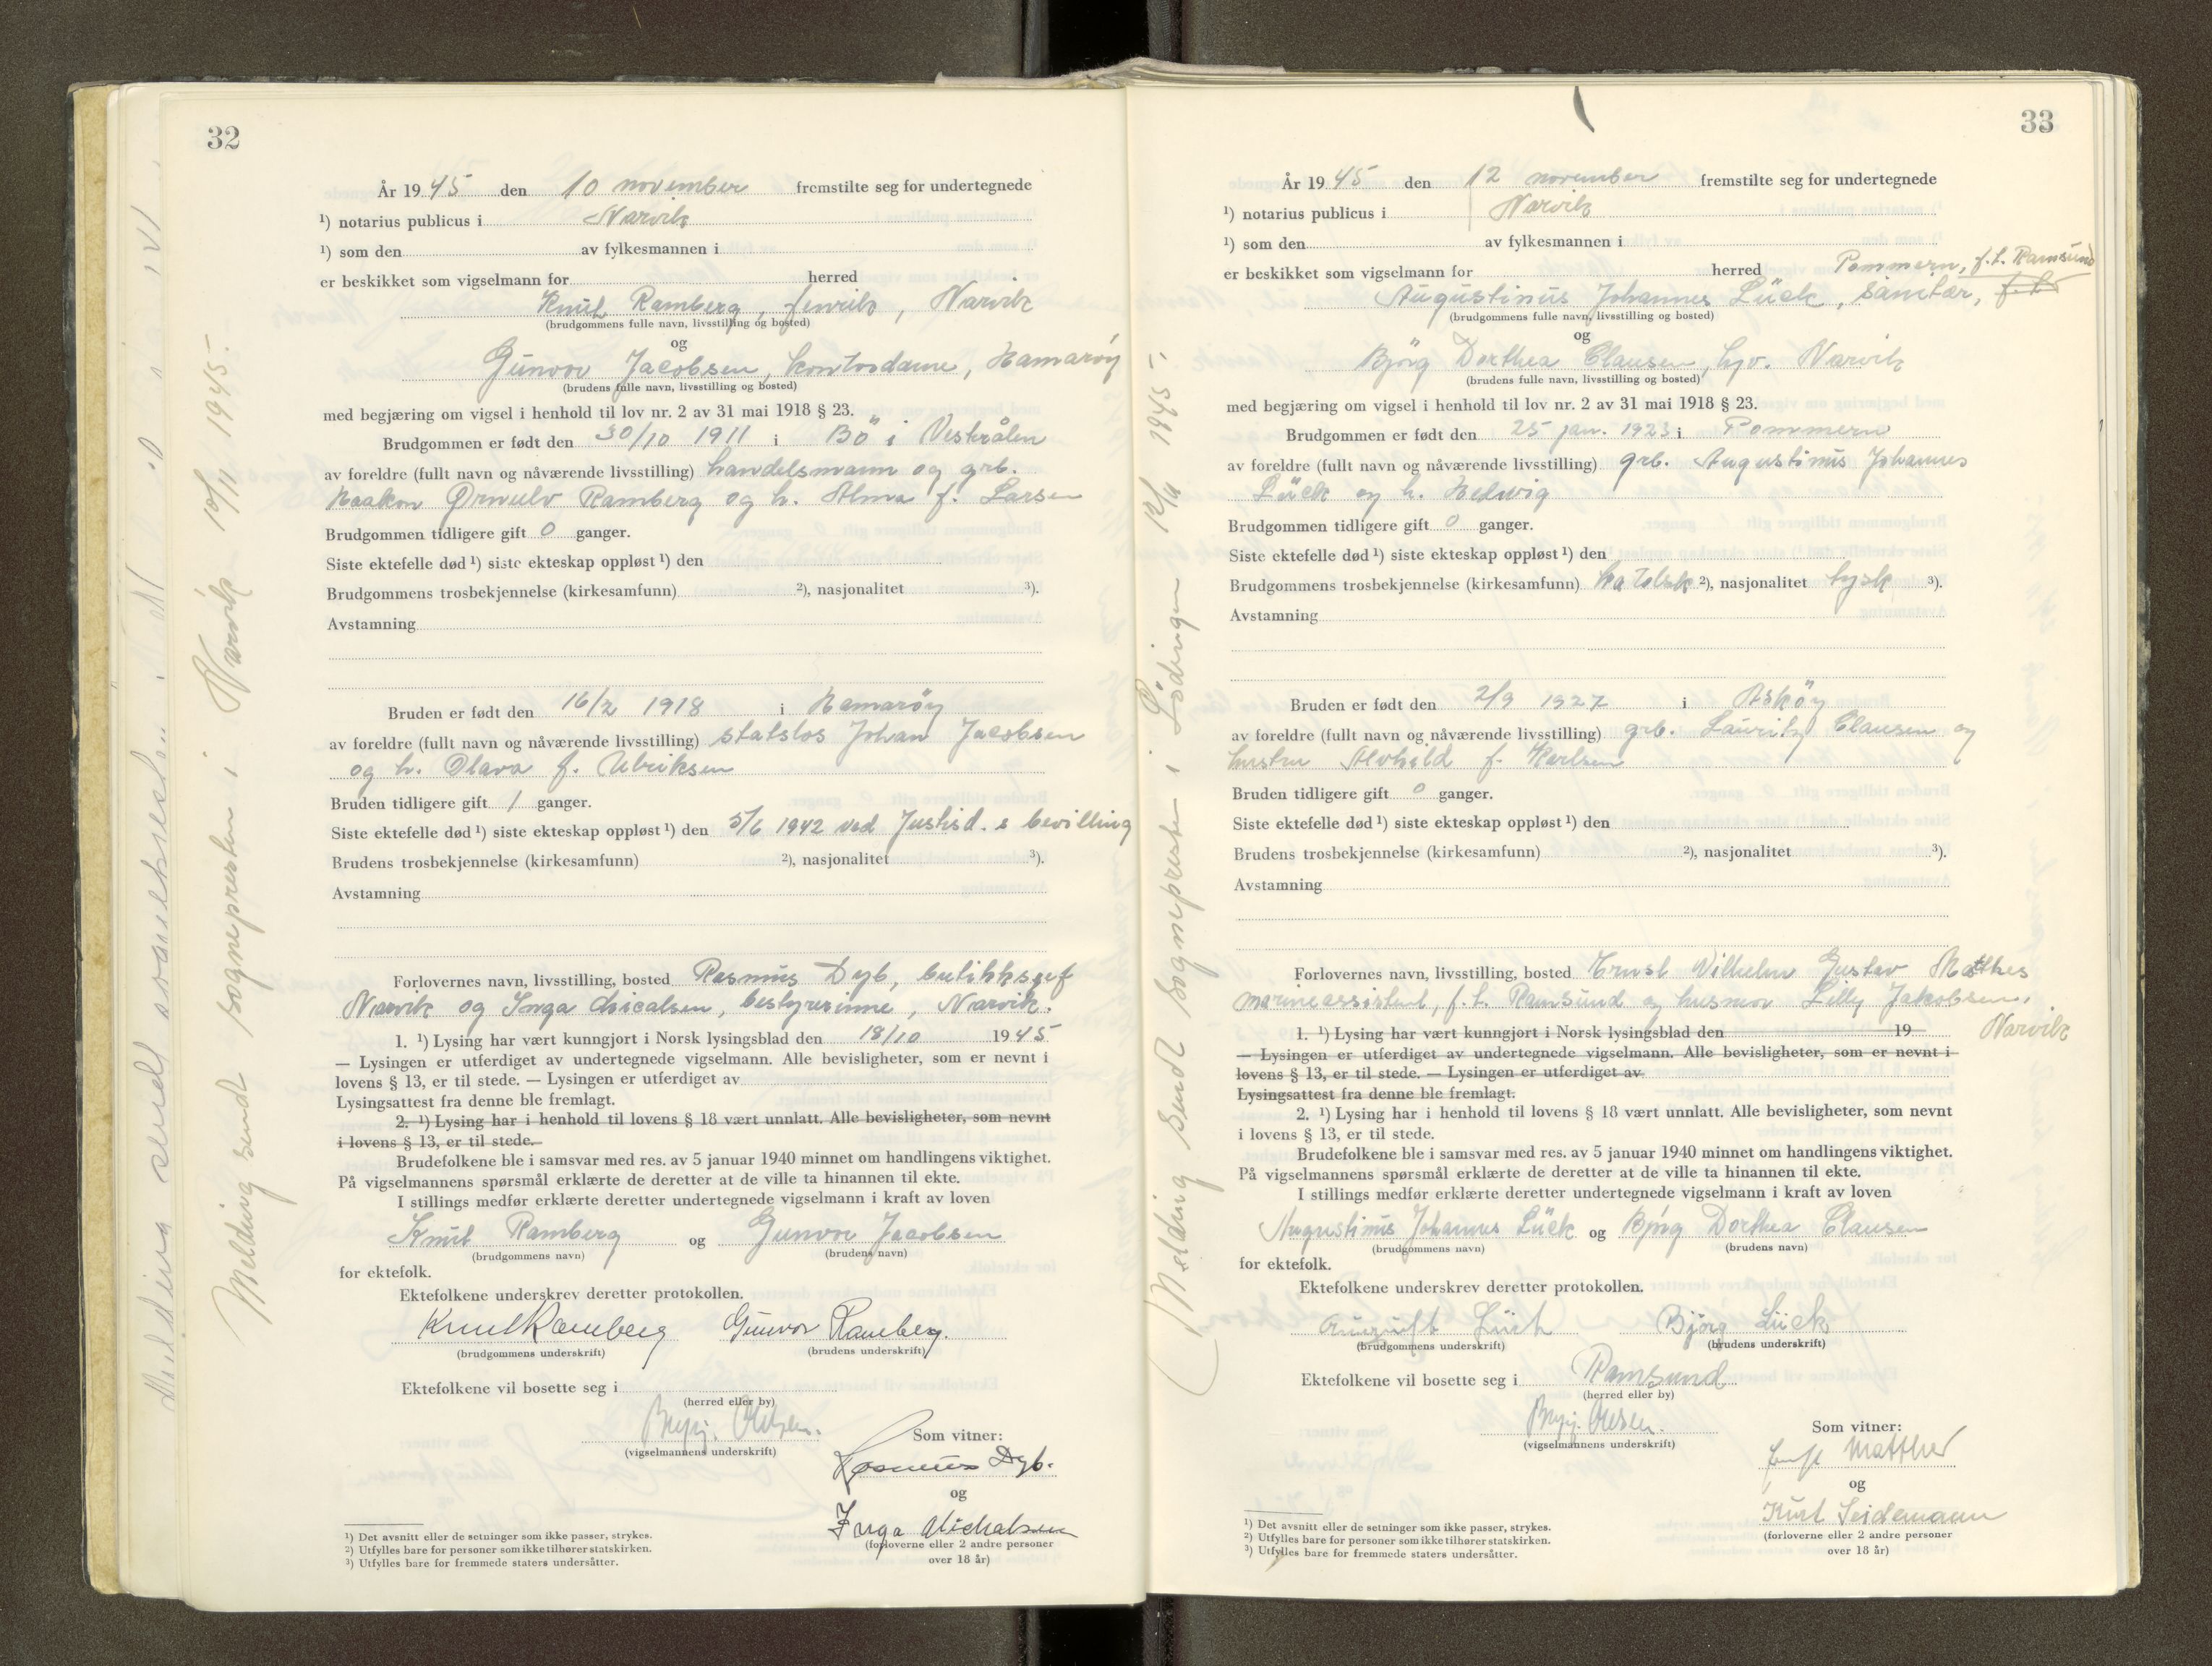 32
År 1945 den 10 november fremstilte seg for undertegnede
¹) notarius publicus i Narvik
¹) som den av fylkesmannen i
er beskikket som vigselmann for herred
Knut Ramberg, fenrik, Narvik
(brudgommens fulle navn, livsstilling og bosted)
og
Gunvor Jacobsen, kontordame, Hamarøy
(brudens fulle navn, livsstilling og bosted)
med begjæring om vigsel i henhold til lov nr. 2 av 31 mai 1918 § 23.
Brudgommen er født den 30/10 1911 i Bö i Vesterålen
av foreldre (fullt navn og nåværende livsstilling) handelsmann og grb.
Haakon Ørnulv Ramberg og h. Alma f. Larsen
Brudgommen tidligere gift 0 ganger.
Siste ektefelle død ¹) siste ekteskap oppløst ¹) den
Brudgommens trosbekjennelse (kirkesamfunn) ²), nasjonalitet ³).
Avstamning
Bruden er født den 16/2 1918 i Hamaröy
av foreldre (fullt navn og nåværende livsstilling) statslos Johan Jacobsen
og h. Olava f. Ulriksen
Bruden tidligere gift 1 ganger.
Siste ektefelle død ¹) siste ekteskap oppløst ¹) den 5/6 1942 ved Justisd. s bevilling
Brudens trosbekjennelse (kirkesamfunn) ²), nasjonalitet ³).
Avstamning
Forlovernes navn, livsstilling, bosted Rasmus Dyb, butikksjef
Narvik og Inga Micalsen, bestyrerinne, Narvik.
1. ¹) Lysing har vært kunngjort i Norsk lysingsblad den 18/10 1945
— Lysingen er utferdiget av undertegnede vigselmann. Alle bevisligheter, som er nevnt i
lovens § 13, er til stede. — Lysingen er utferdiget av
Lysingsattest fra denne ble fremlagt.
2. ¹) Lysing har i henhold til lovens § 18 vært unnlatt. Alle bevisligheter, som nevnt
i lovens § 13, er til stede.
Brudefolkene ble i samsvar med res. av 5 januar 1940 minnet om handlingens viktighet.
På vigselmannens spørsmål erklærte de deretter at de ville ta hinannen til ekte.
I stillings medfør erklærte deretter undertegnede vigselmann i kraft av loven
Knut Ramberg og Gunvor Jacobsen
(brudgommens navn) (brudens navn)
for ektefolk.
Ektefolkene underskrev deretter protokollen.
Knut Ramberg Gunvor Ramberg.
(brudgommens underskrift) (brudens underskrift)
Ektefolkene vil bosette seg i
(herred eller by)
(vigselmannens underskrift)
Som vitner:
Rasmus Dyb.
og
Inga Michalsen
(forloverne eller 2 andre personer
over 18 år)
¹) Det avsnitt eller de setninger som ikke passer, strykes.
²) Utfylles bare for personer som ikke tilhører statskirken.
³) Utfylles bare for fremmede staters undersåtter.
Melding sendt sognepresten i Narvik 10/11 1945.
33
År 1945 den 12 november fremstilte seg for undertegnede
¹) notarius publicus i Narvik
¹) som den av fylkesmannen i
er beskikket som vigselmann for herred Pommern, f.t. Ramsund
Augustinus Johannes Lück, sanitær, f.t.
(brudgommens fulle navn, livsstilling og bosted)
og
Bjørg Dorthea Clausen, hjv. Narvik
(brudens fulle navn, livsstilling og bosted)
med begjæring om vigsel i henhold til lov nr. 2 av 31 mai 1918 § 23.
Brudgommen er født den 25 jan. 1923 i Pommern
av foreldre (fullt navn og nåværende livsstilling) grb. Augustinus Johannes
Lück og h. Hedwig
Brudgommen tidligere gift 0 ganger.
Siste ektefelle død ¹) siste ekteskap oppløst ¹) den
Brudgommens trosbekjennelse (kirkesamfunn) katolsk ²), nasjonalitet tysk ³).
Avstamning
Bruden er født den 2/9 1927 i Asköy
av foreldre (fullt navn og nåværende livsstilling) grb. Lauritz Clausen og
hustru Alvhild f. Karlsen
Bruden tidligere gift 0 ganger.
Siste ektefelle død ¹) siste ekteskap oppløst ¹) den
Brudens trosbekjennelse (kirkesamfunn) ²), nasjonalitet ³).
Avstamning
Forlovernes navn, livsstilling, bosted Ernst Wilhelm Gustav Matthes
marineassistent, f.t. Ramsund og husmor Lilly Jakobsen,
Narvik
1. ¹) Lysing har vært kunngjort i Norsk lysingsblad den 19
— Lysingen er utferdiget av undertegnede vigselmann. Alle bevisligheter, som er nevnt i
lovens § 13, er til stede. — Lysingen er utferdiget av
Lysingsattest fra denne ble fremlagt.
2. ¹) Lysing har i henhold til lovens § 18 vært unnlatt. Alle bevisligheter, som nevnt
i lovens § 13, er til stede.
Brudefolkene ble i samsvar med res. av 5 januar 1940 minnet om handlingens viktighet.
På vigselmannens spørsmål erklærte de deretter at de ville ta hinannen til ekte.
I stillings medfør erklærte deretter undertegnede vigselmann i kraft av loven
Augustinus Johannes Lück og Bjørg Dorthea Clausen
(brudgommens navn) (brudens navn)
for ektefolk.
Ektefolkene underskrev deretter protokollen.
August Lück Bjørg Lück
(brudgommens underskrift) (brudens underskrift)
Ektefolkene vil bosette seg i Ramsund
(herred eller by)
(vigselmannens underskrift)
Som vitner:
Ernst Matthes
og
Kurt Seidemann
(forloverne eller 2 andre personer
over 18 år)
¹) Det avsnitt eller de setninger som ikke passer, strykes.
²) Utfylles bare for personer som ikke tilhører statskirken.
³) Utfylles bare for fremmede staters undersåtter.
Melding sendt sognepresten i Lödingen 12/11 1945